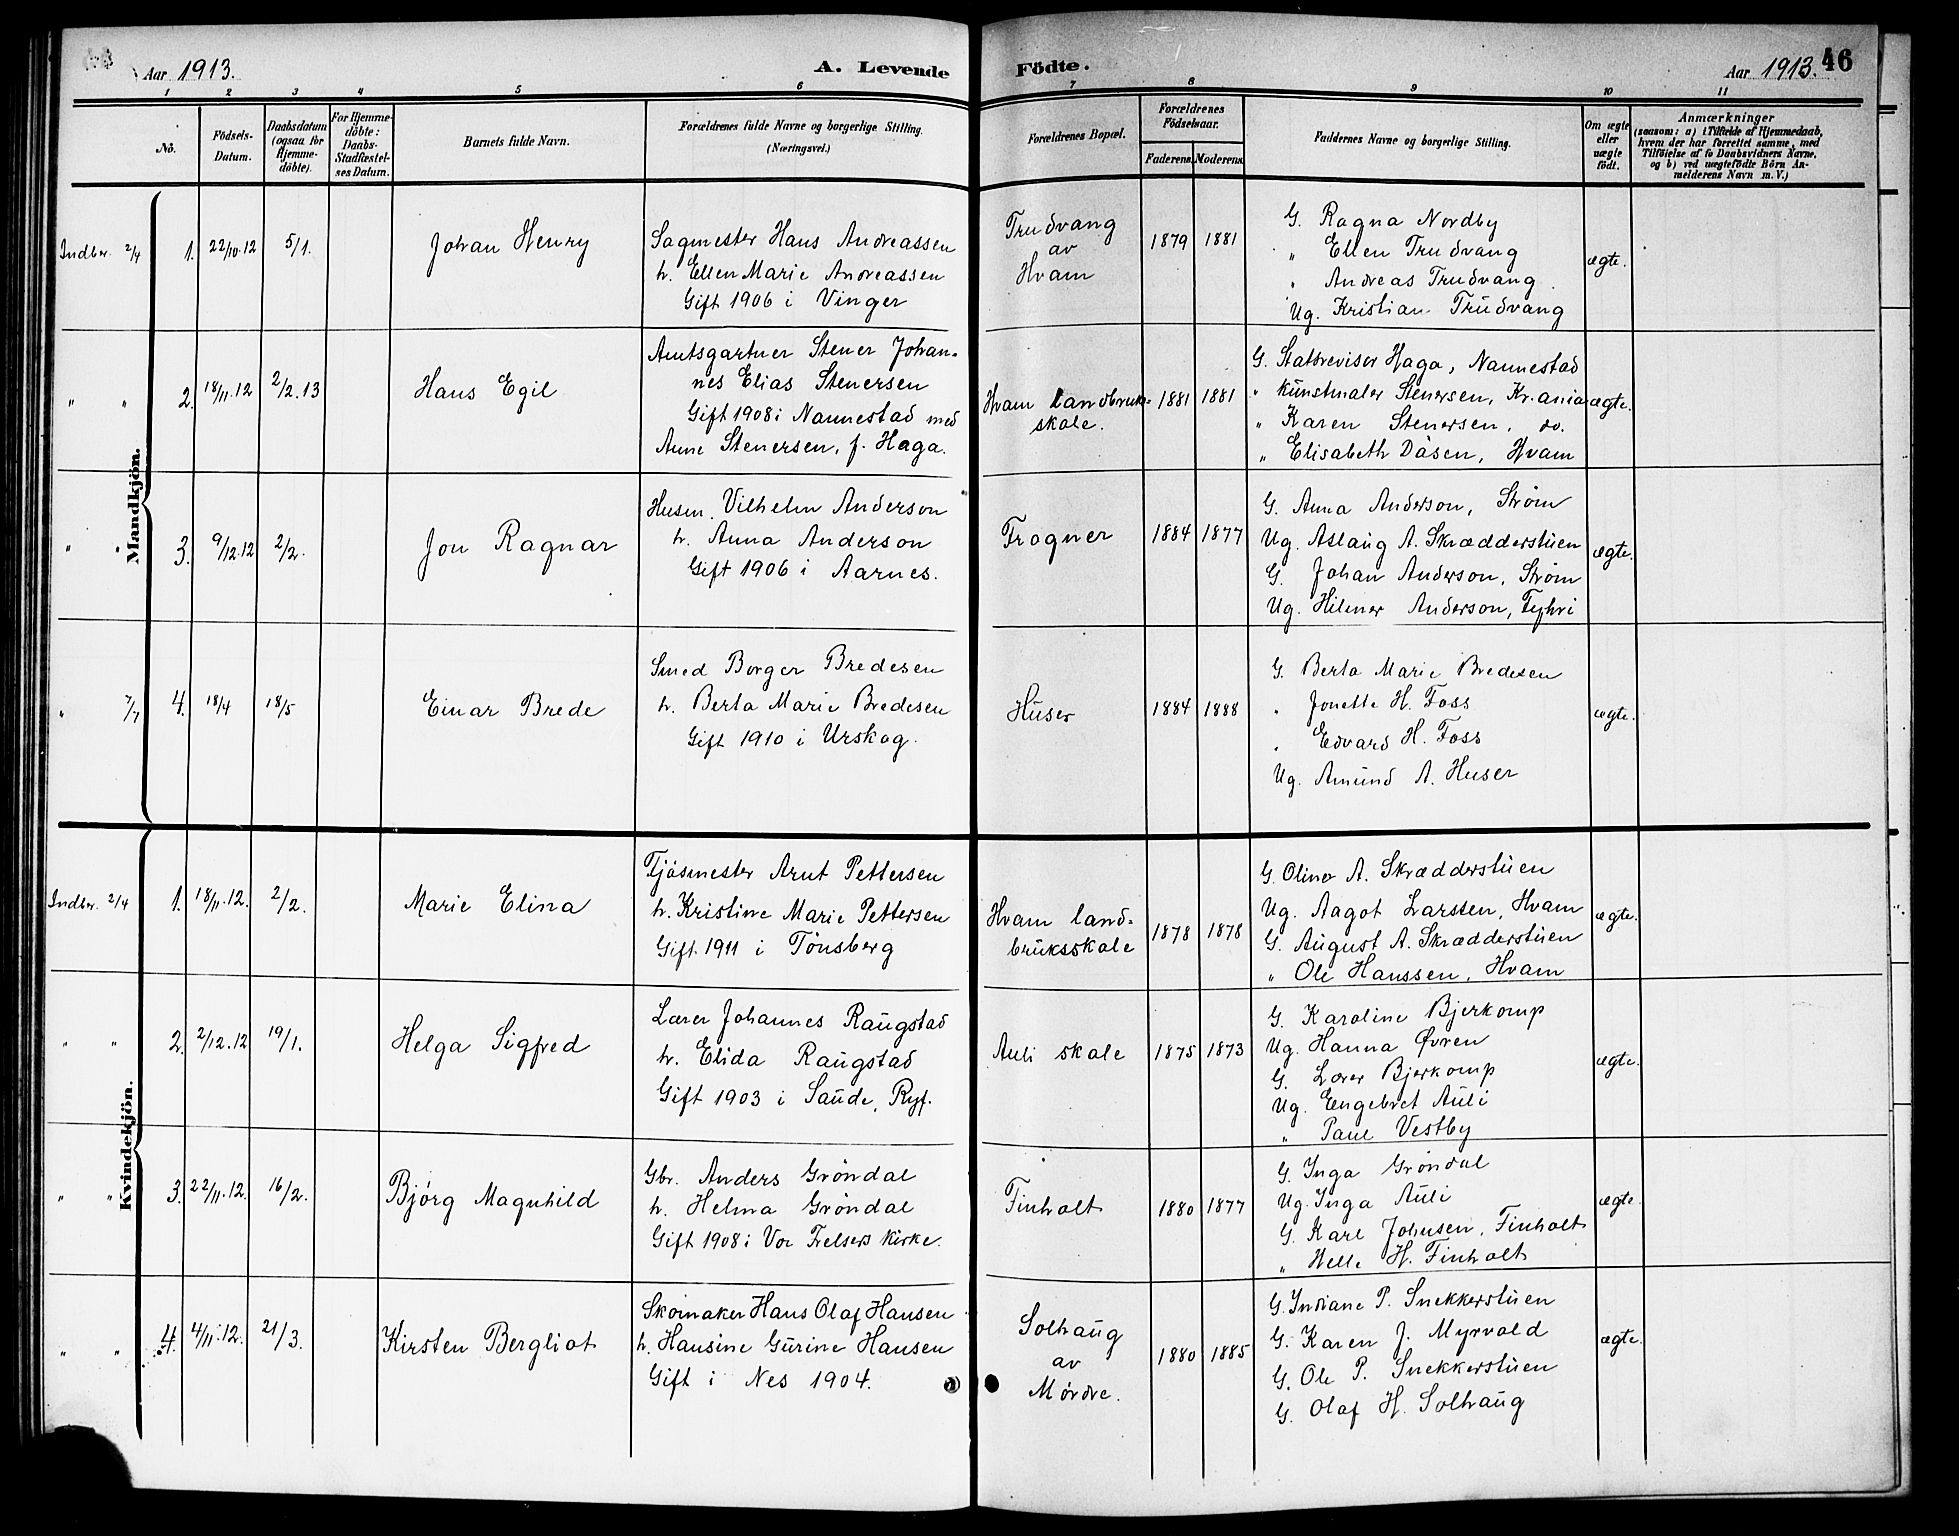 Aar 1913.
A. Levende
Födte.
Aar 1913.
46
1 2 3 4 5 6 7 8 9 10 11
Nô.
Födsels-
Datum.
Daabsdatum
(ogsaa for
Hjemme-
döbte).
For Hjemme-
döbte:
Daabs-
Stadfæstel-
ses Datum.
Barnets fulde Navn.
Forældrenes fulde Navne og borgerlige Stilling.
(Næringsvei.)
Forældrenes Bopæl.
Forældrenes
Födselsaar.
Faderens.
Moderens.
Faddernes Navne og borgerlige Stilling.
Om ægte
eller
uægte
födt.
Anmærkninger
(saasom: a) i Tilfælde af Hjemmedaab,
hvem der har forrettet samme, med
Tilföielse af to Daabsvidners Navne,
og b) ved uægtefödte Börn An-
melderens Navn m. V.)
Mandkjön.
Indber. 2/4 1. 22/10.12 5/1. Johan Henry
Sagmester Hans Andreassen
h. Ellen Marie Andreassen
Gift 1906 i Vinger
Trudvang
av
Hvam
1879 1881
G. Ragna Nordby
" Ellen Trudvang
" Andreas Trudvang.
Ug. Kristian Trudvang
ægte.
" " 2. 18/11.12 2/2.13 Hans Egil
Amtsgartner Stener Johan-
nes Elias Stenersen
Gift 1908 i Nannestad med
Anne Stenersen, f. Haga.
Hvam landbruk-
skole.
1881 1881
G. Statsrevisor Haga, Nannestad
" Kunstmaler Stenersen, Kr.ania
" Karen Stenersen, do.
" Elisabeth Dåsen, Hvam
ægte.
" " 3. 9/12.12 2/2. Jon Ragnar
Husm. Vilhelm Anderson
h. Anna Anderson
Gift 1906 i Aarnes.
Frogner
1884 1877
G. Anna Anderson, Strøm
Ug. Aslaug A. Skrædderstuen
G. Johan Anderson, Strøm
Ug. Hilmer Anderson,
ægte.
" 7/7 4. 18/4 18/5 Einar Brede
Smed Borger Bredesen
h. Berta Marie Bredesen
Gift 1910 i Urskog.
Huser
1884 1888
G. Berta Marie Bredesen
" Jonette H. Foss
" Edvard H. Foss
Ug. Amund A. Huser
ægte.
Kvindekjön.
Indber. 2/4 1. 18/11.12. 2/2. Marie Elina
Fjøsmester Arnt Pettersen
h. Kristine Marie Pettersen
Gift. 1911 i Tønsberg
Hvam land-
bruksskole
1878 1878
G. Oline A. Skrædderstuen
Ug. Aagot Larssen, Hvam
G. August A. Skrædderstuen
" Ole Hanssen, Hvam
ægte.
" " 2. 2/12.12 19/1. Helga Sigfred
Lærer Johannes Raugstad
h. Elida Raugstad
Gift 1903 i Saude, Ryf.
Auli skole
1875 1873
G. Karoline Bjerkomp
Ug. Hanna Øvren
G. Lærer Bjerkomp
Ug. Engebret Auli
" Paul Vestby
ægte.
" " 3. 22/11.12. 16/2. Bjørg Magnhild
Gbr. Anders Grøndal
h. Helma Grøndal
Gift 1908 i Vor Frelsers kirke.
Finholt
1880 1877
G. Inga Grøndal
Ug. Inga Auli
G. Karl Johnsen, Finholt
" Helle H. Finholt
ægte.
" " 4. 4/11.12. 21/3. Kirsten Bergliot
Skomaker Hans Olaf Hansen
h. Hansine Gurine Hansen
Gift i Nes 1904.
Solhaug
av
Mørdre.
1880 1885
G. Indiane P. Snekkerstuen
G. Karen J. Myrvold
G. Ole P. Snekkerstuen
G. Olaf H. Solhaug
ægte.